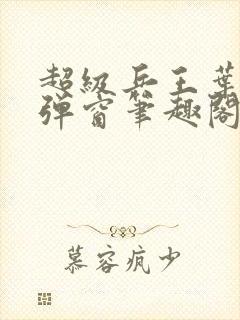 超级兵王葉
弹窗笔趣阁
慕容疯少